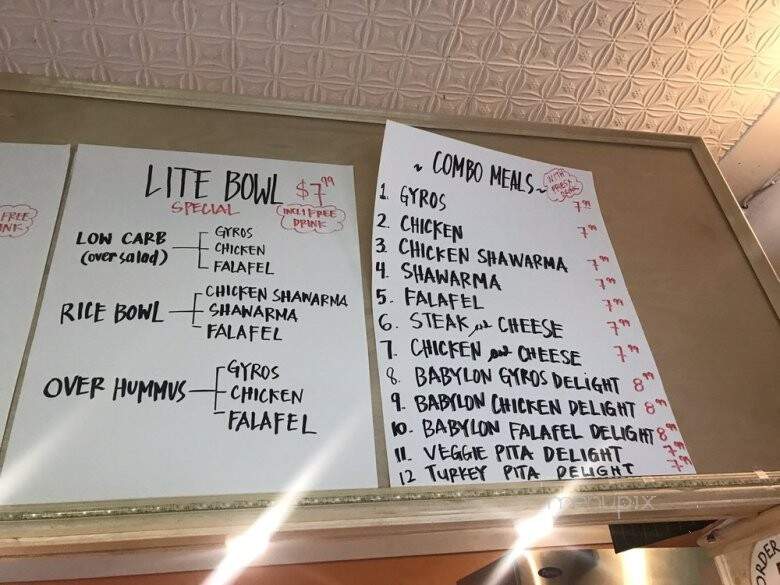 FREE
INK
LITE BOWL $7.99
SPECIAL
INCL: FREE
DRINK
LOW CARB
(over salad)
GYROS
CHICKEN
FALAFEL
RICE BOWL
CHICKEN SHAWARMA
SHAWARMA
FALAFEL
OVER HUMMUS
GYROS
CHICKEN
FALAFEL
~ COMBO MEALS ~
WITH
1. GYROS 7.99
2. CHICKEN 7.99
3. CHICKEN SHAWARMA 7.99
4. SHAWARMA 7.99
5. FALAFEL 7.99
6. STEAK and CHEESE 7.99
7. CHICKEN and CHEESE 7.99
8. BABYLON GYROS DELIGHT 8.99
9. BABYLON CHICKEN DELIGHT 8.99
10. BABYLON FALAFEL DELIGHT 8.99
11. VEGGIE PITA DELIGHT 7.99
12 TURKEY PITA DELIGHT 7.99
menupix
RDER